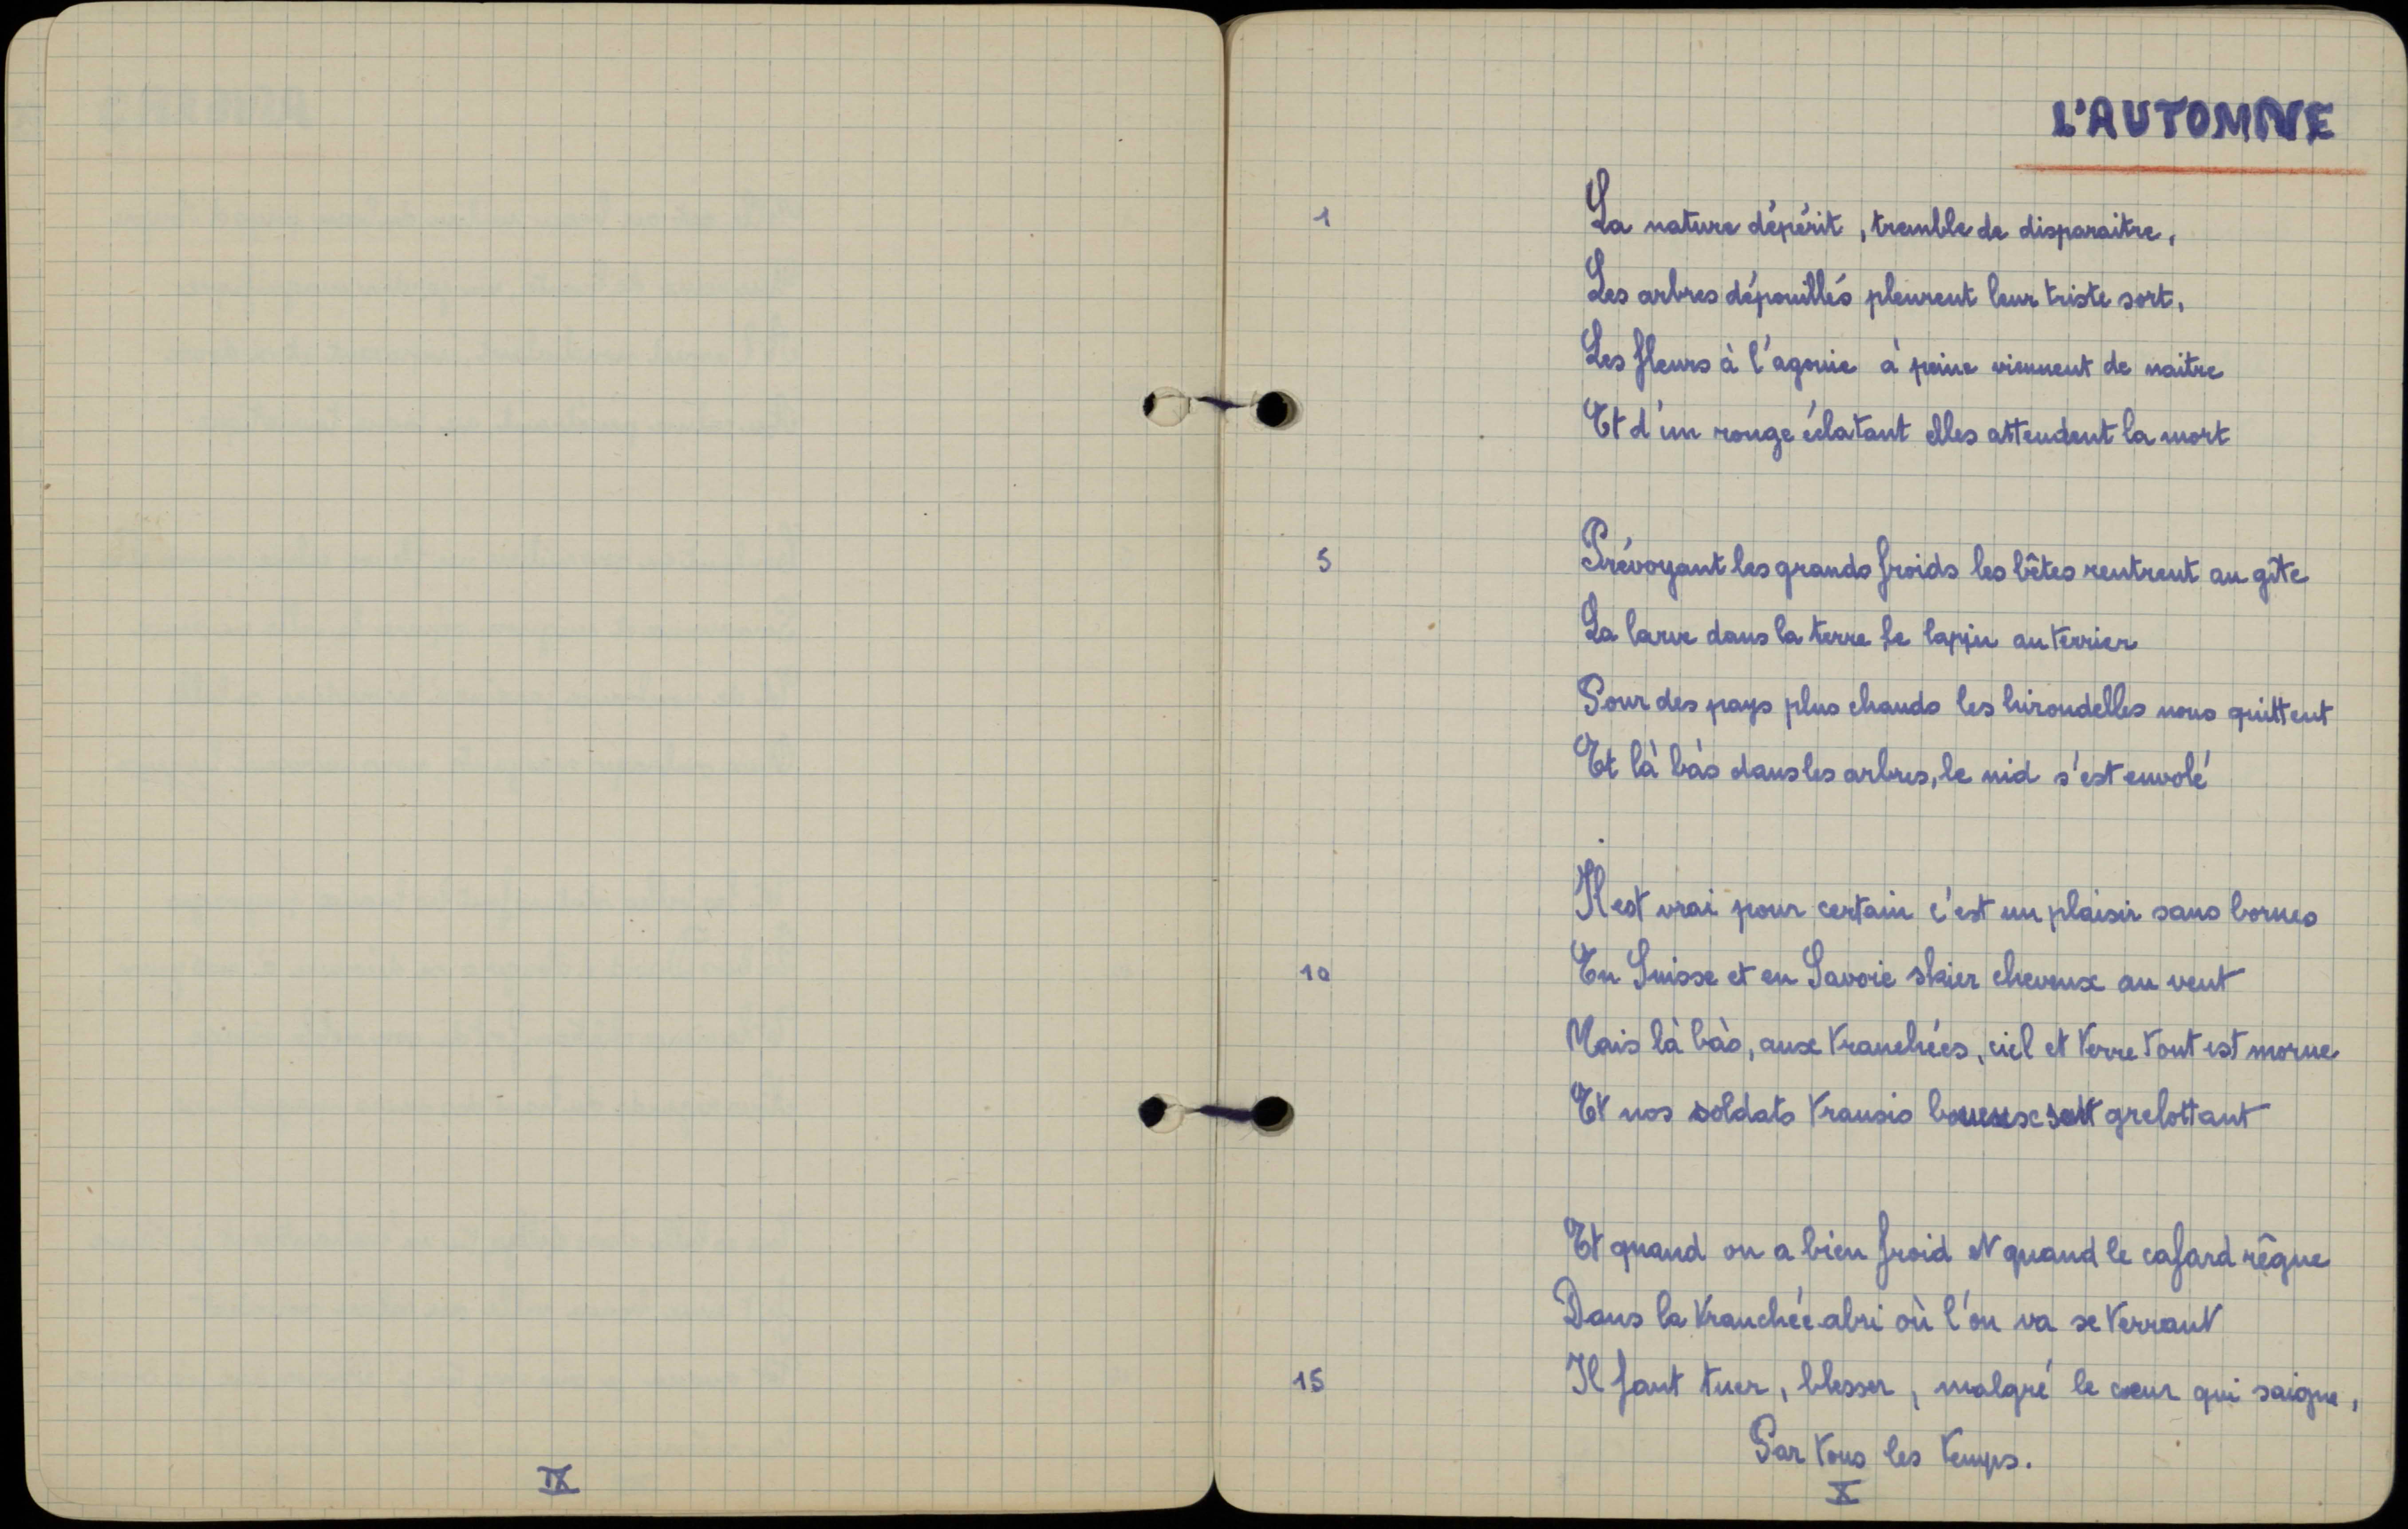 IX
L'AUTOMNE
1 La nature dépérit, tremble de disparaitre,
Les arbres dépouillés pleurent leur triste sort,
Les fleurs à l'agonie à peine viennent de naitre
Et d'un rouge éclatant elles attendent la mort
5 Prévoyant les grands froids les bêtes rentrent au gîte
La larve dans la terre le lapin au terrier
Pour des pays plus chauds les hirondelles nous quittent
Et là bàs dans les arbres, le nid s'est envolé
Il est vrai pour certain c'est un plaisir sans bornes
10 En Suisse et en Savoie skier cheveux au vent
Mais là bàs, aux tranchées, ciel et terre tout est morne
Et nos soldats transis boueux sont grelottant
Et quand on a bien froid et quand le cafard rêgne
Dans la tranchée abri où l'on va se terrant
15 Il faut tuer, blesser, malgré le cœur qui saigne,
Par tous les temps.
X